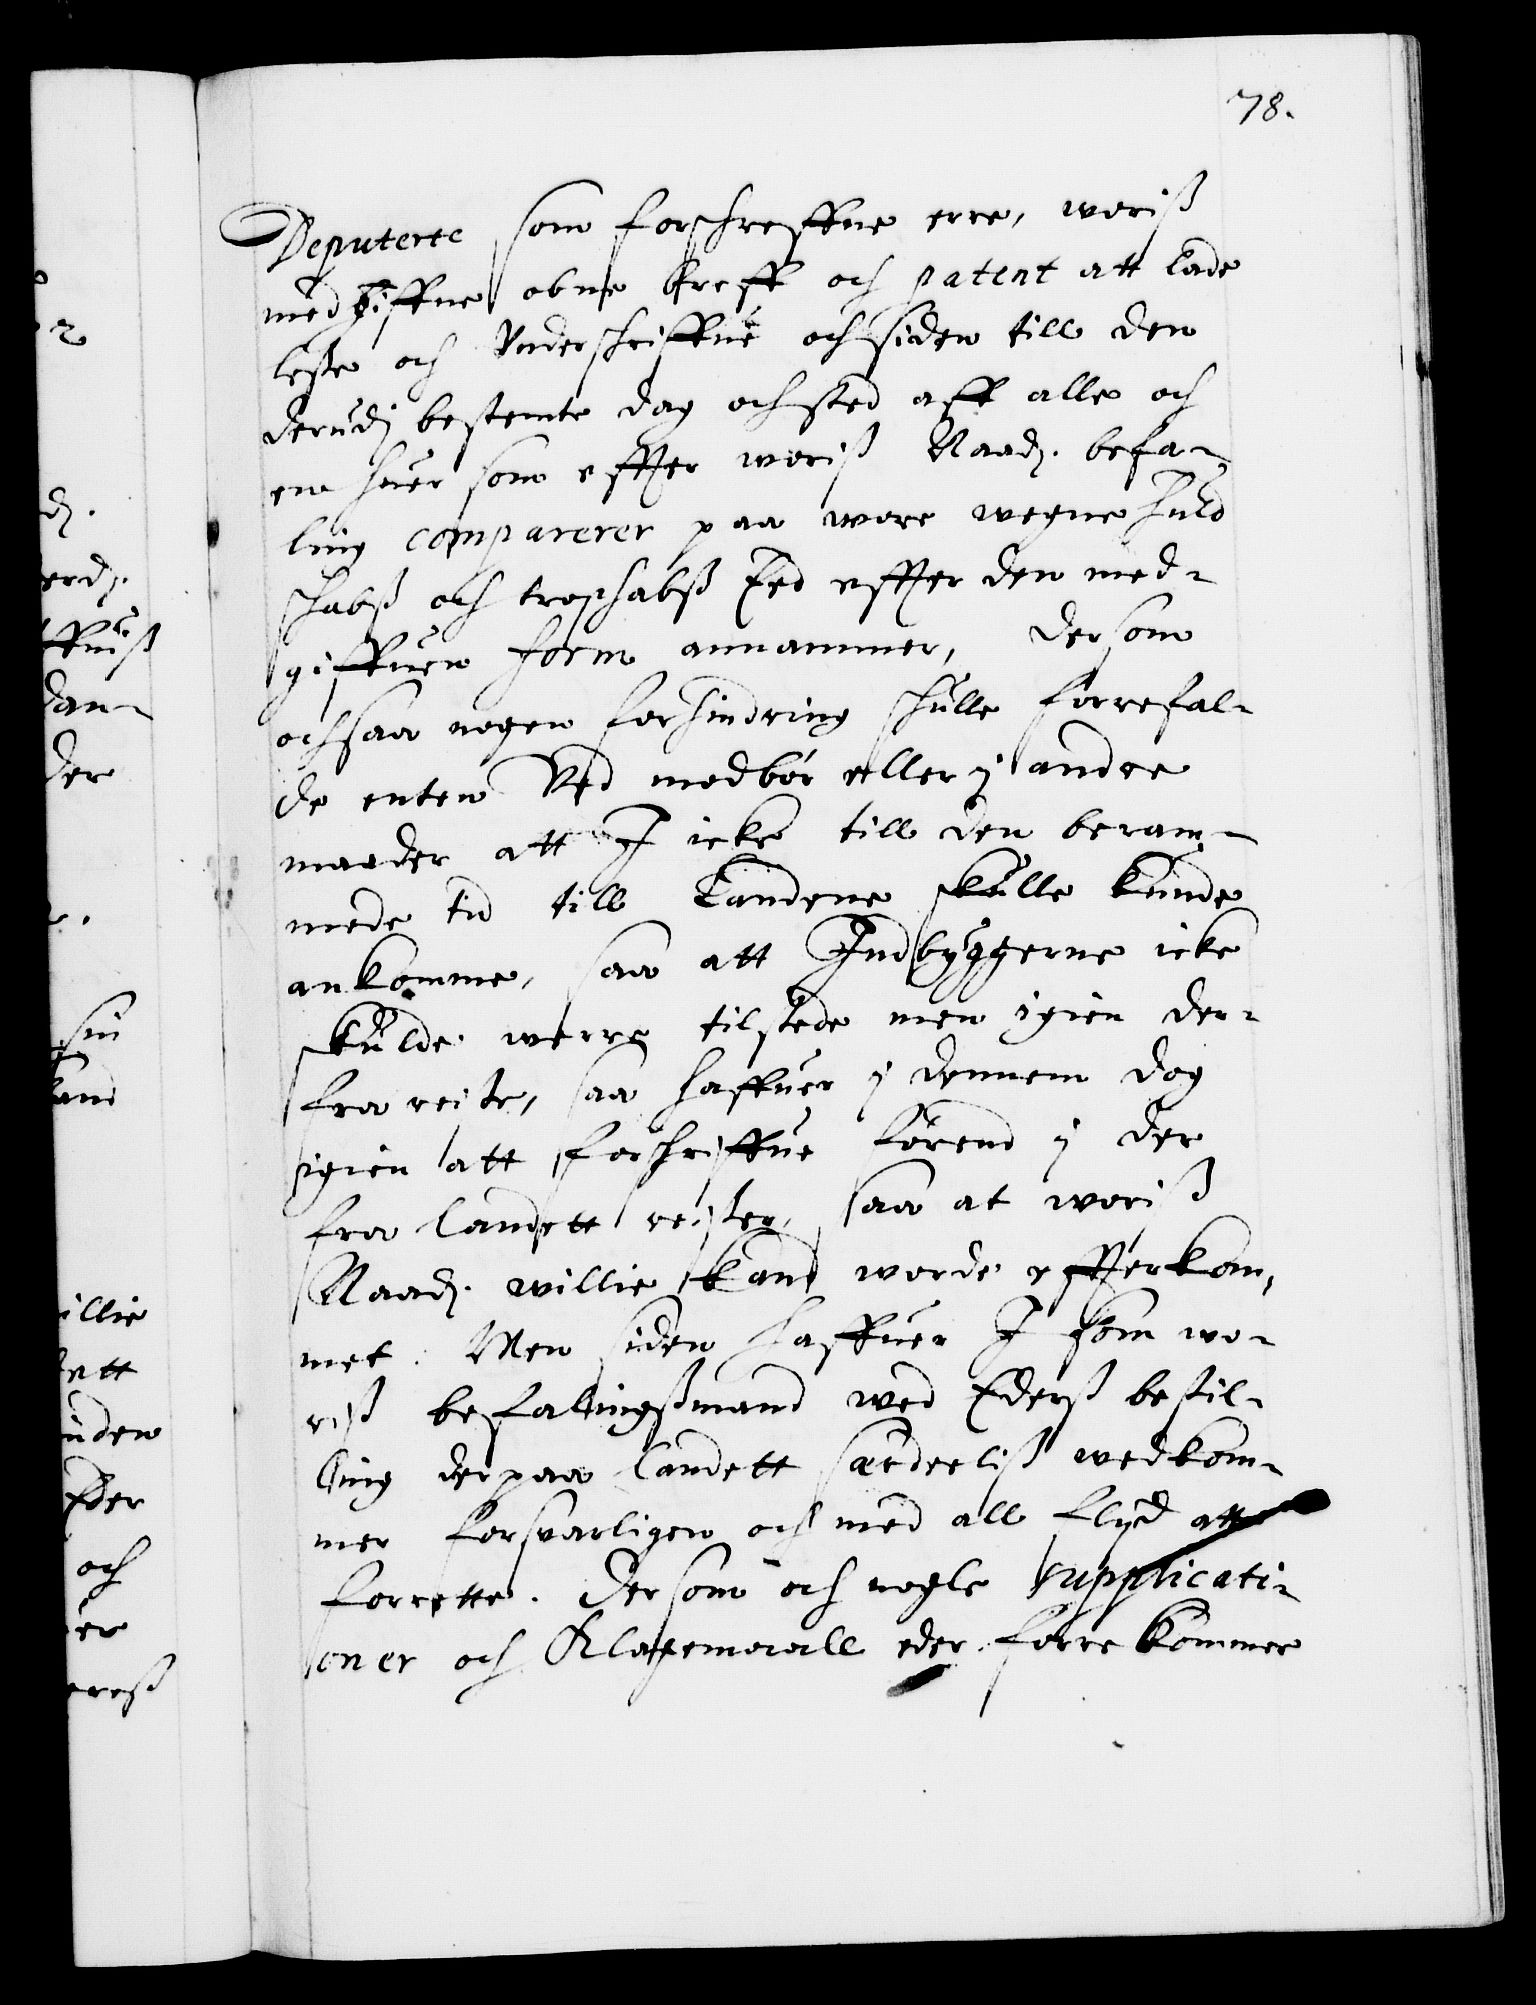 78.
Deputerte som forschreffne erre, woriß
med giffne obne breff och patent att lade
leße och Vnderschriffue och siden till den
derudj bestemte dag och sted aff alle och
en huer som effter woriß Naadj. befa-
ling comparerer paa wore wegne huld
schabß och troschabß Eed effter den med-
giffuen form annammer, Dersom
ochsaa nogen forhindring schulle forrefal-
de enten Ved modbör eller j andre
maader att I icke till den beram-
mede tid till Landene skulle kunde
ankomme, saa att Indbyggerne icke
skulde werre tilstede men igien der-
fra reiste, saa haffuer j dennem dog
igien att forschriffue förend j der
fra landett reißer, saa at woriß
Naadj. willie kand worde effterkom,
met. Men siden haffuer I som wo-
riß befalingßmand wed Ederß bestil-
ling der paa landett særdeeliß wedkom-
mer forsvarligen och med all flijd att
forrette. Dersom och nogle supplicati-
oner och Klagemaall eder forrekommer
dj.
erdj.
ffuiß
dan-
der
sin
land
illie
ett
uden
Eder
och
er
ereß